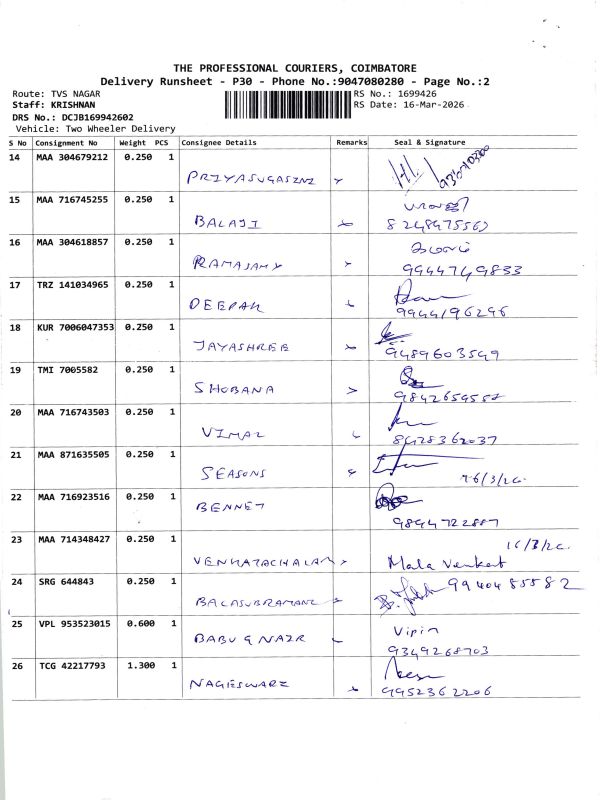 THE PROFESSIONAL COURIERS, COIMBATORE
Delivery Runsheet - P30 - Phone No.:9047080280 - Page No.:2
Route: TVS NAGAR
RS No.: 1699426
Staff: KRISHNAN
RS Date: 16-Mar-2026
DRS No.: DCJB169942602
Vehicle: Two Wheeler Delivery
S No Consignment No Weight PCS Consignee Details Remarks Seal & Signature
14 MAA 304679212 0.250 1
PRIYASUGASINI
15 MAA 716745255 0.250 1
BALAJI
16 MAA 304618857 0.250 1
RAMASAMY 9944749833
17 TRZ 141034965 0.250 1
DEEPAK 9944196296
18 KUR 7006047353 0.250 1
JAYASHREE 9489603549
19 TMI 7005582 0.250 1
SHOBANA
20 MAA 716743503 0.250 1
VIMAL 8428362037
21 MAA 871635505 0.250 1
SEASONS
22 MAA 716923516 0.250 1
BENNET
23 MAA 714348427 0.250 1 16/3/26.
VENKATACHALAM Mala Venkat
24 SRG 644843 0.250 1 9940485582
BALASUBRAMANI
25 VPL 953523015 0.600 1 Vipin
BABU G NAIR 9349268703
26 TCG 42217793 1.300 1
NAGESWARI 9952362206